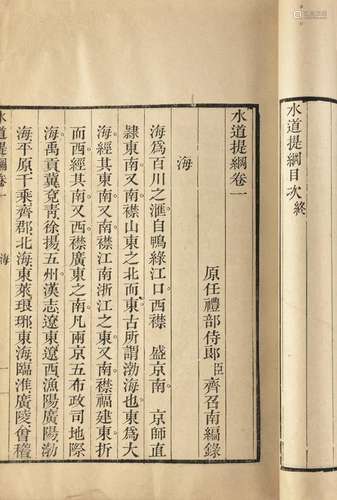 水道提綱目次終
水道提綱卷一
原任禮部侍郎臣齊召南編錄
海
海爲百川之滙自鴨綠江口西襟　盛京南　京師直
隸東南又南襟山東之北而東古所謂渤海也東爲大
海經其東南又南襟江南浙江之東又南襟福建東折
而西經其南又西襟廣東之南凡兩京五布政司地際
海禹貢冀兗靑徐揚五州漢志遼東遼西漁陽廣陽渤
海平原千乘齊郡北海東萊琅琊東海臨淮廣陵會稽
水道提綱卷一　海